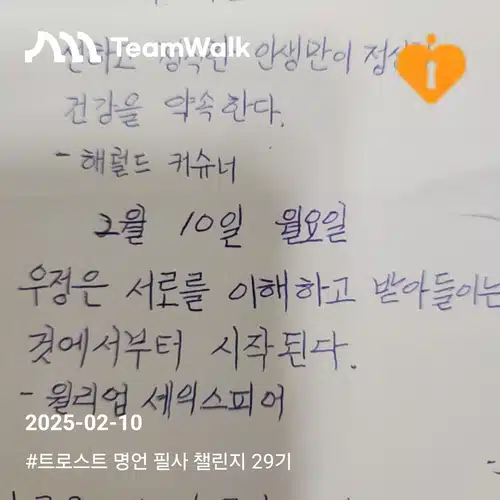 TeamWalk
선하고 정직한 인생만이
건강을 약속한다.
- 해럴드 커슈너
2월 10일 월요일
우정은 서로를 이해하고 받아들이는
것에서부터 시작된다.
- 윌리엄 세익스피어
2025-02-10
#트로스트 명언 필사 챌린지 29기